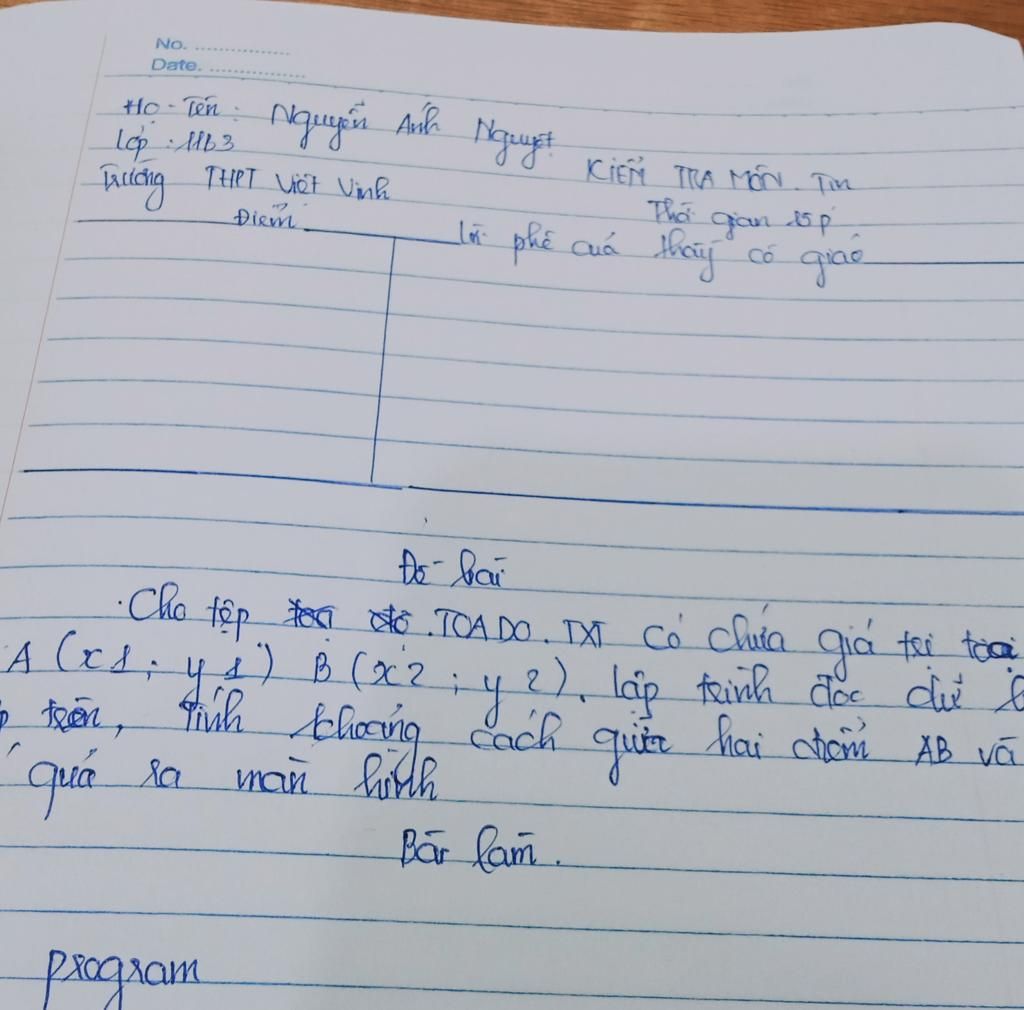 No. ................
Date. ................
Họ - Tên : Nguyễn Ánh Nguyệt
Lớp : 11b3
KIỂM TRA MÔN. Tin
Trường THPT Việt Vinh
Thời gian 15p
Điểm
lời phê cuả thầy cô giáo
Đề bài
Cho tệp TOADO.TXT có chứa giá trị toạ
A (x1; y1) B (x2; y2). lập trình đọc dữ l
p trên, tính khoảng cách giữa hai điểm AB và
quả ra màn hình
Bài làm.
program